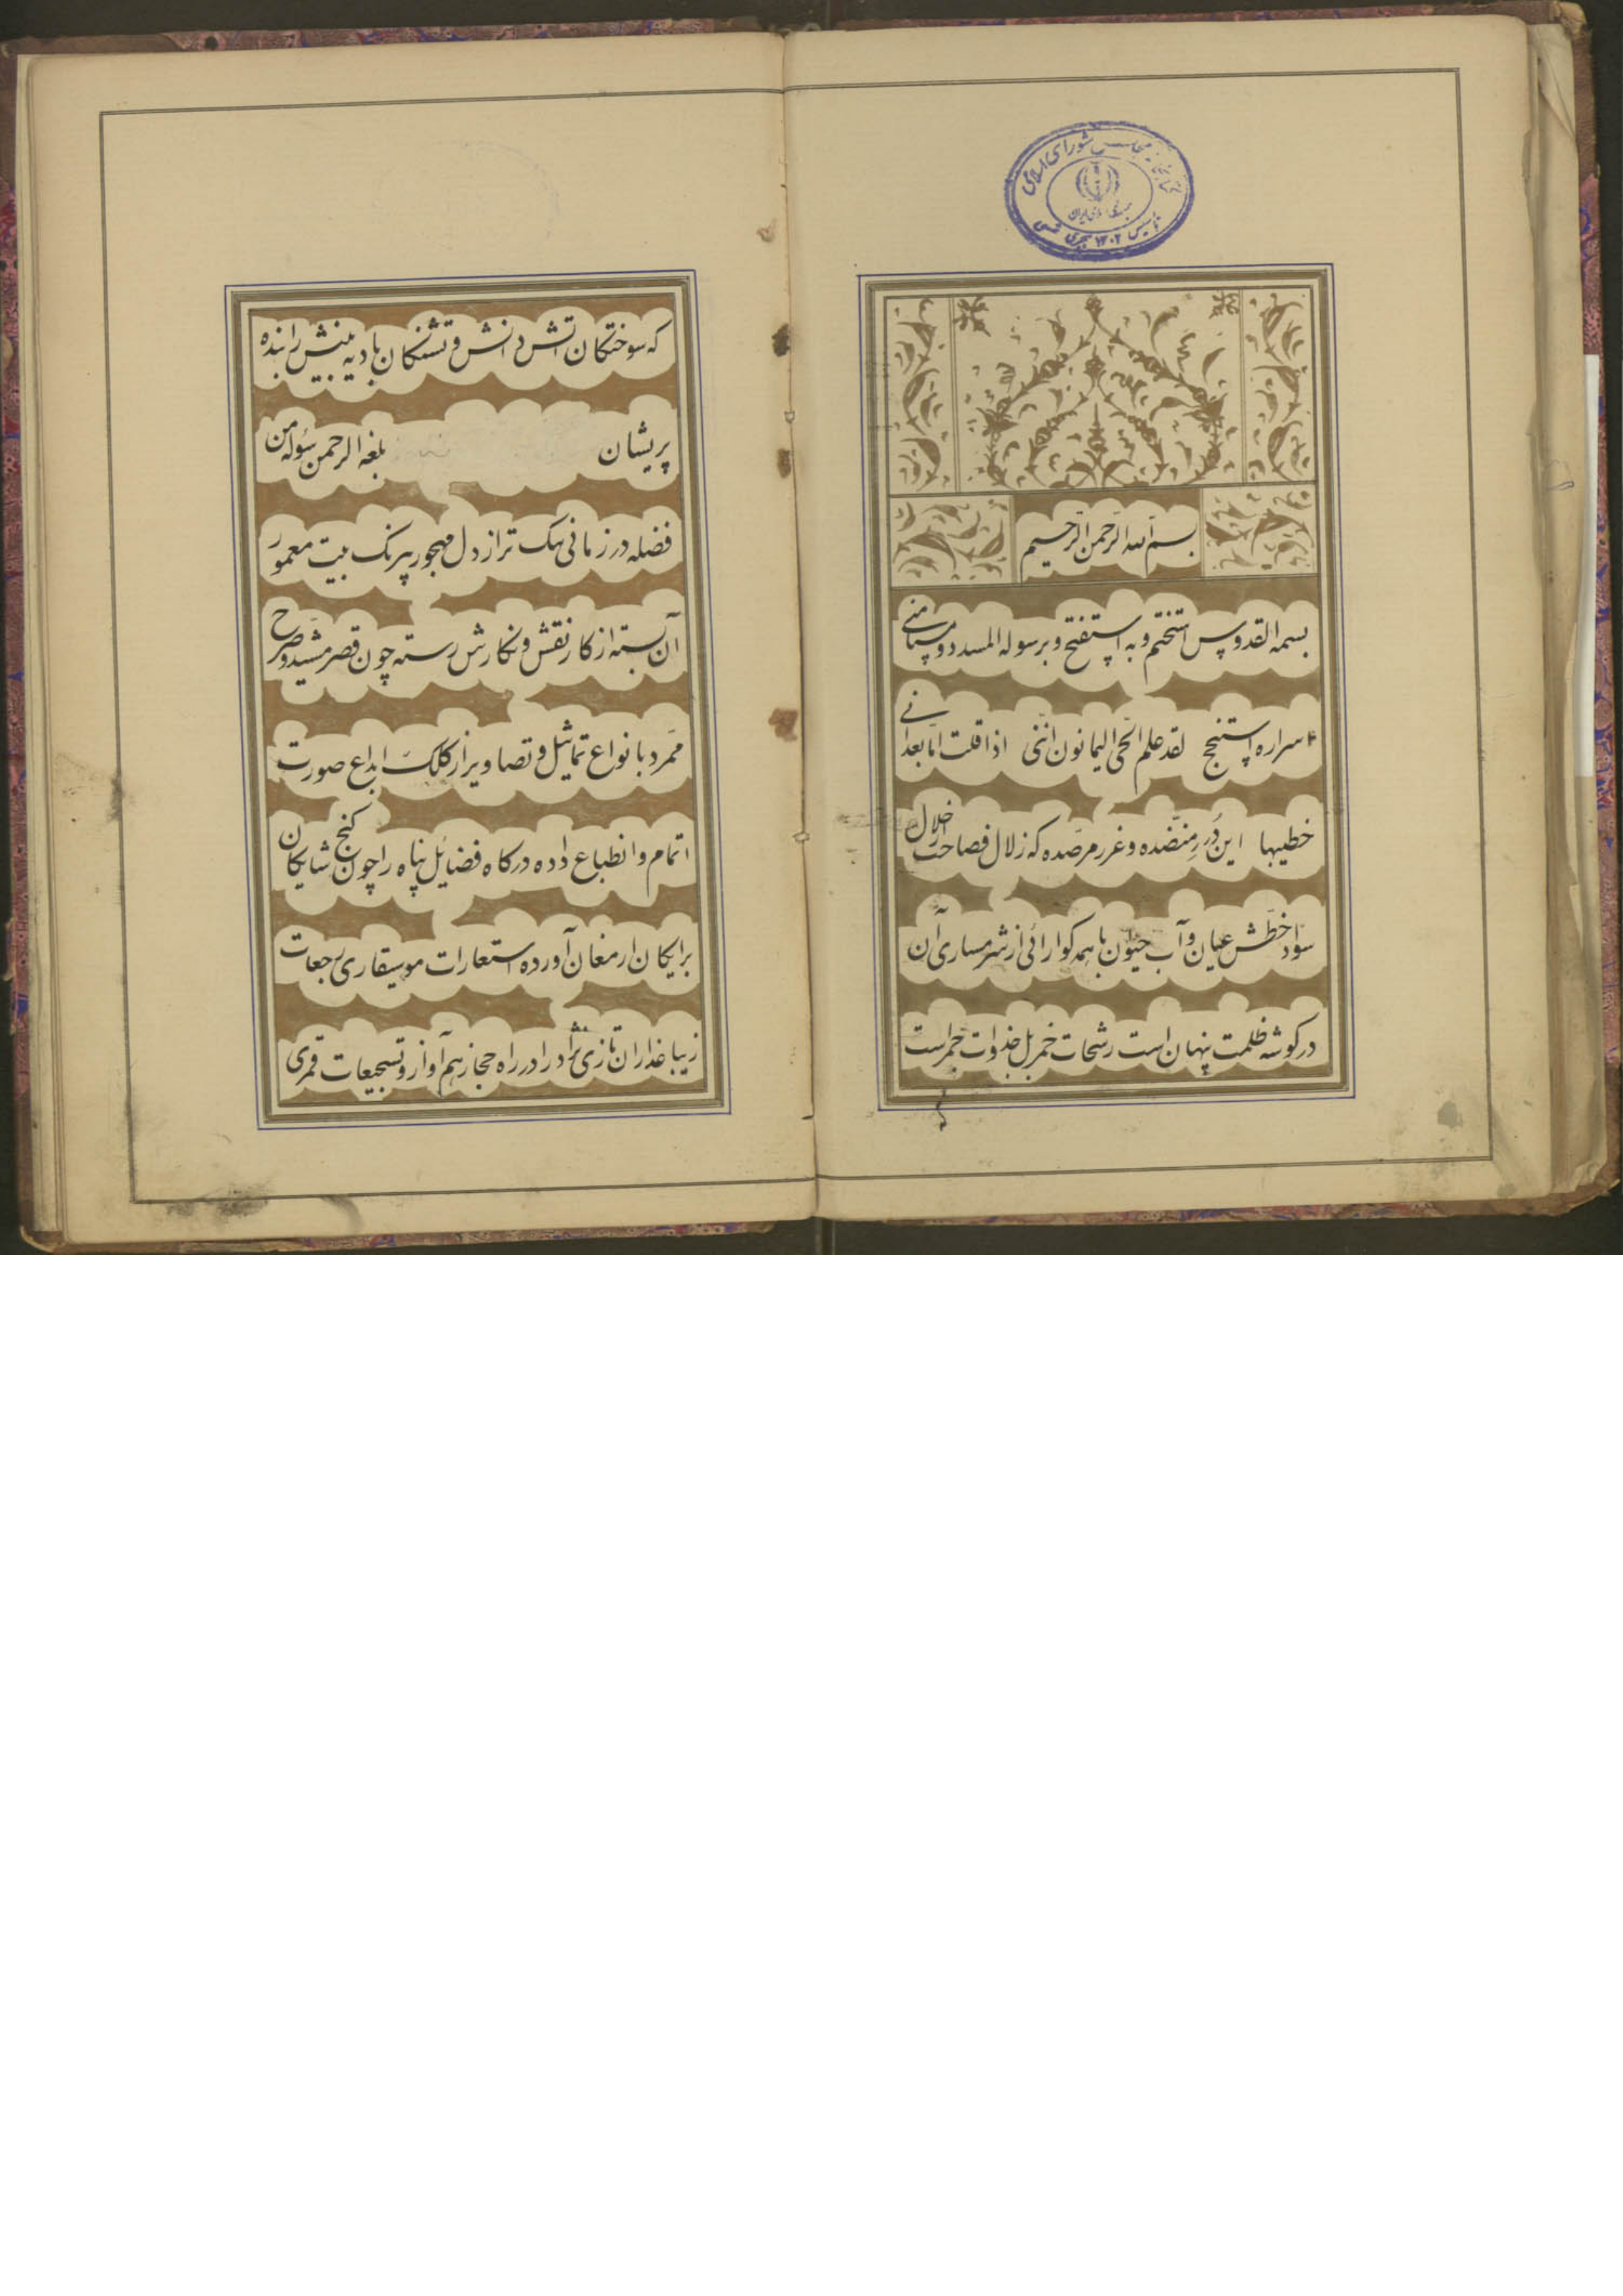 کتابخانه مجلس شورای اسلامی
جمهوری اسلامی ایران
تأسیس ۱۳۰۲ هجری شمسی
بسم الله الرحمن الرحیم
بسمه القدوس استختم و به استفتح و برسوله المسدد و
اسراره استنجح لقد علم الحی الیمانون اننی اذا قلت اما بعد انی
خطیبها این درر منضده و غرر مرصده که زلال فصاحت از خلال
سواد خطش عیان و آب حیون با همه کوارائی از شرمساری آن
در کوشه ظلمت پنهان است رشحات خمر بل جذوات جمر است
که سوختکان اتش دانش و تشنکان بادیه بینش را بنده
پریشان بلغه الرحمن سؤله من
فضله در زمانی تنک تر از دل مهجور پیرنک بیت معمور
آن بسته از کار نقش و نکارش رسته چون قصر مشید و صرح
ممرد با نواع تماثیل و تصاویر از کلک ابداع صورت
اتمام و انطباع داده درکاه فضایل پناه را چون کنج شایکان
برایکان ارمغان آورده استعارات موسیقاری رجعات
زیبا عذاران تازی نژاد را در راه حجاز هم آواز و تسجیعات قمری